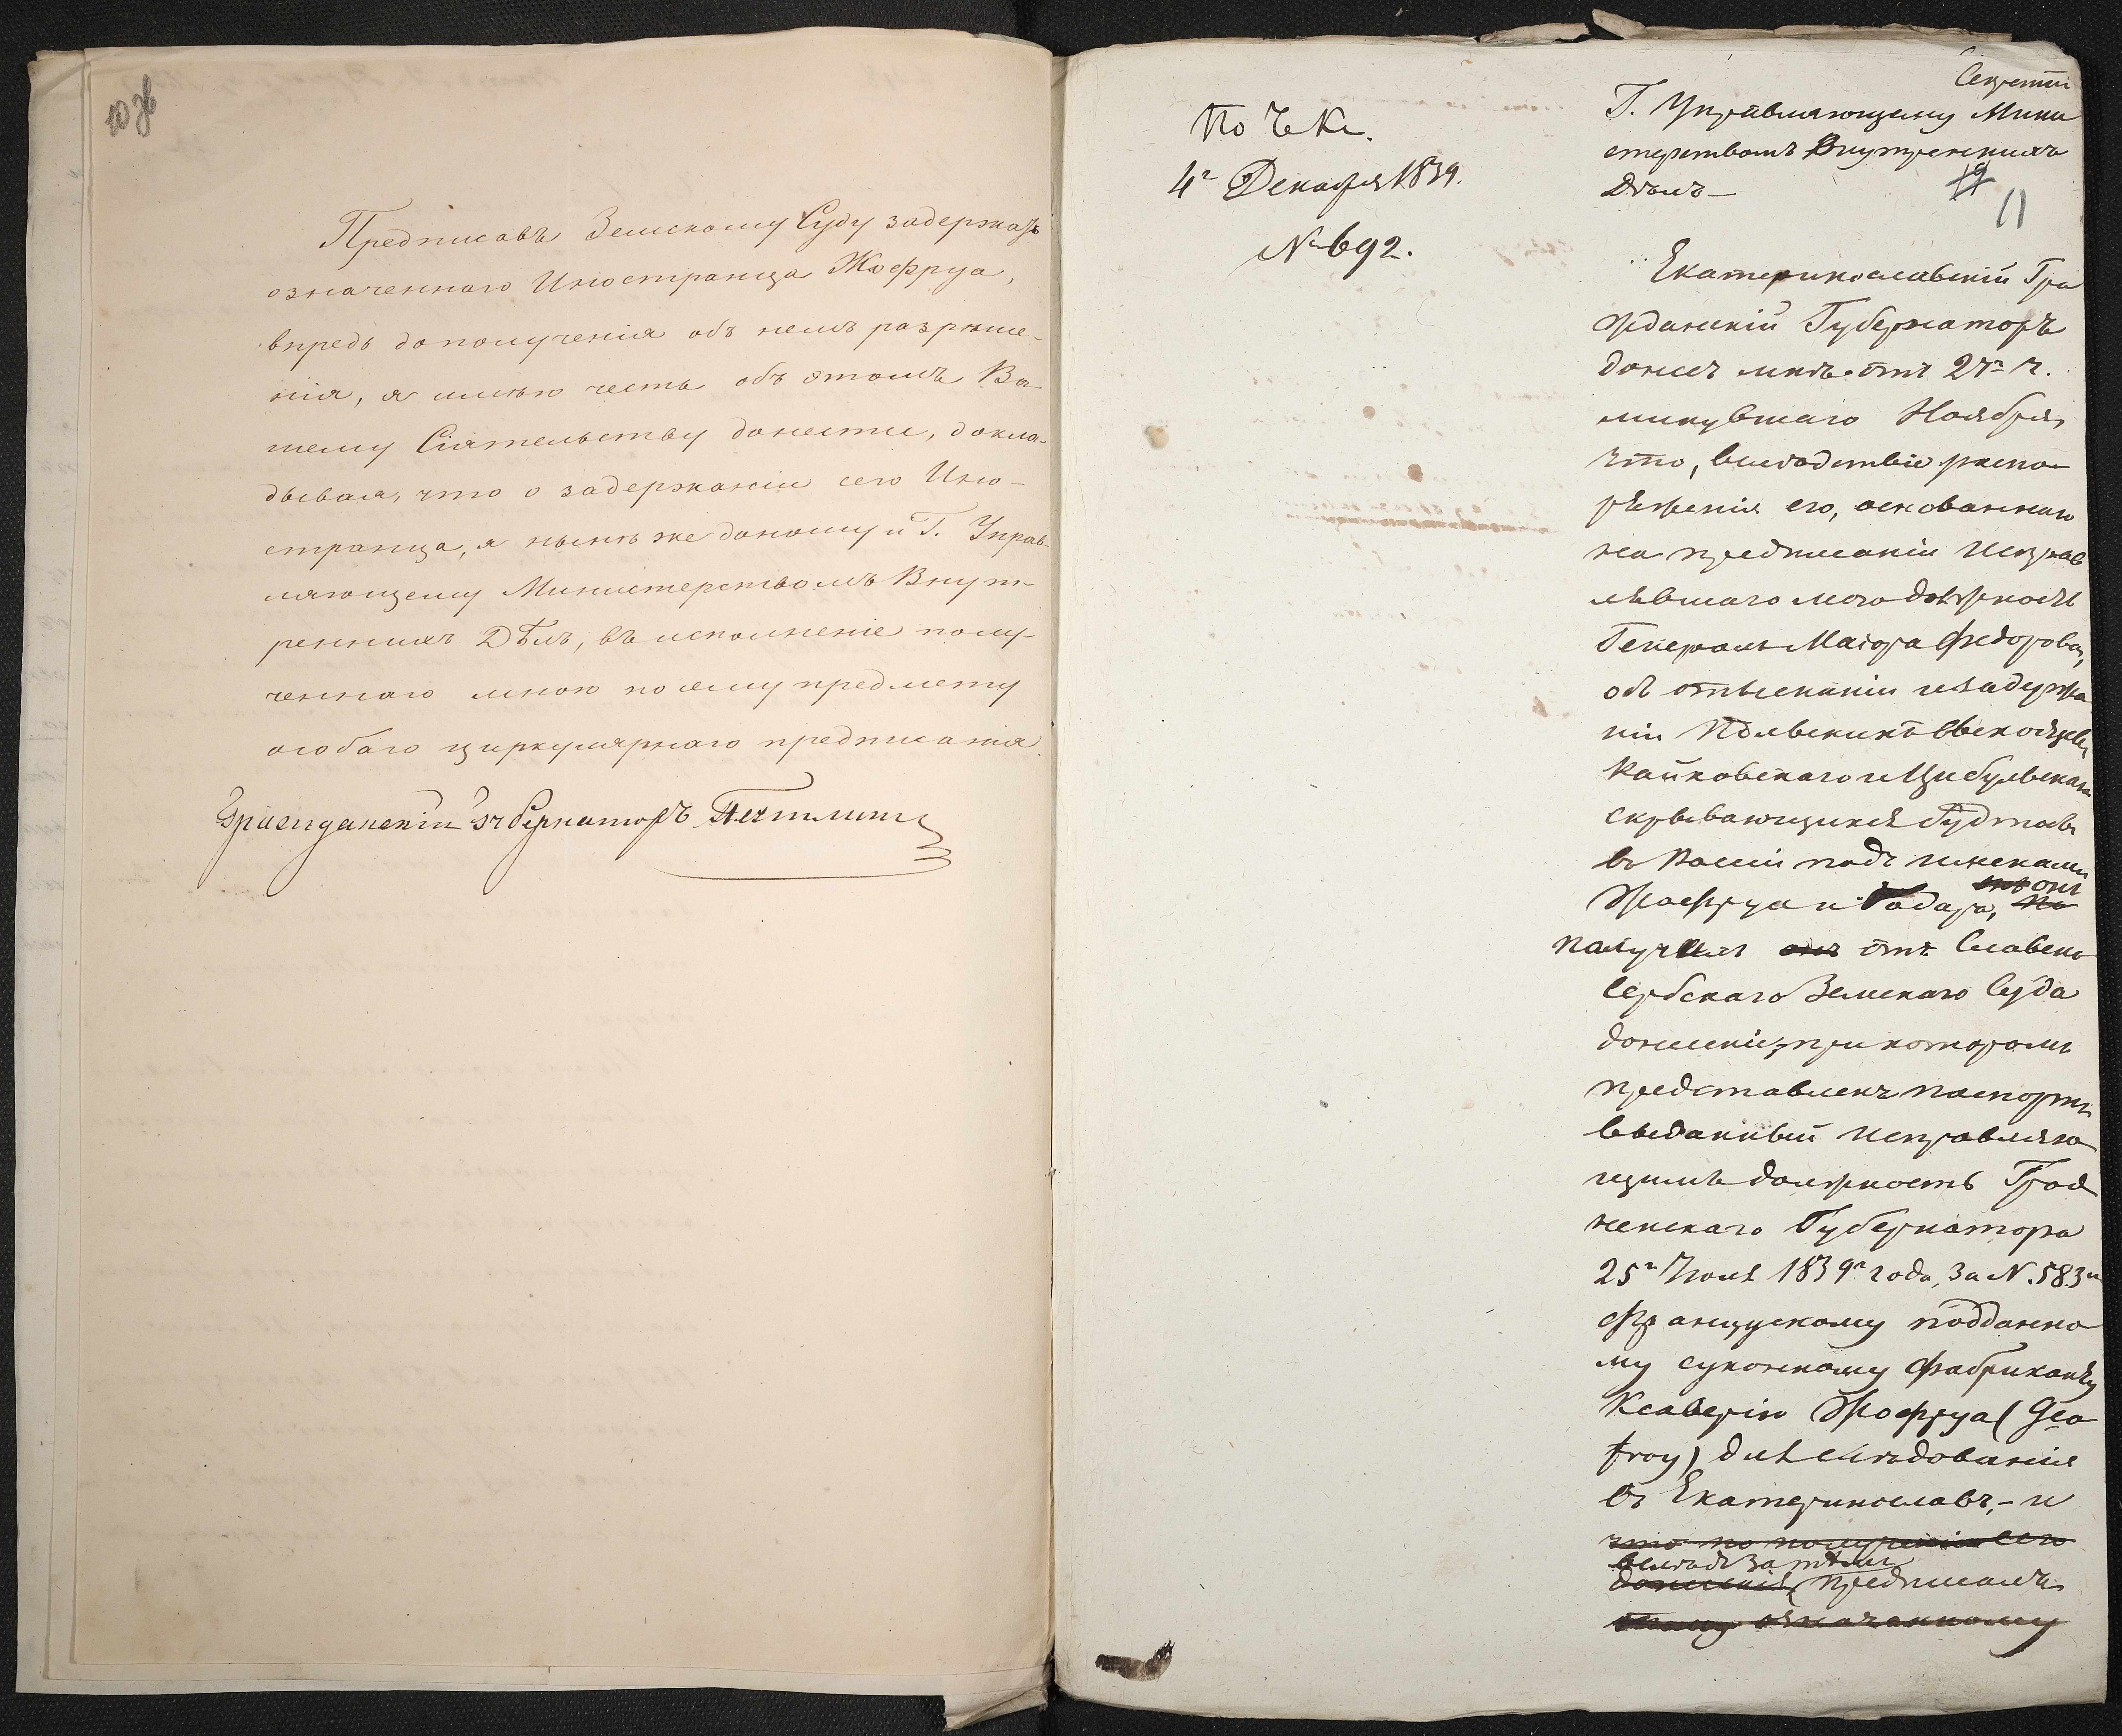 10 об
Предписавъ Земскому Суду задержать
означеннаго Иностранца Жофруа,
впредь до полученія объ немъ разрѣше-
нія, я имѣю честь объ этомъ Ва-
шему Сіятельству донести, докла-
дывая, что о задержаніи сего Ино-
странца, я нынѣ же доношу и Г. Управ-
ляющему Министерствомъ Внут-
реннихъ Дѣлъ, въ исполненіе полу-
ченнаго мною по сему предмету
особаго циркулярнаго предписанія.
Гражданскій Губернаторъ
По
4го Декабря 1839.
№ 692.
Секретно
Г. Управляющему Мини
стерствомъ Внутреннихъ
Дѣлъ —
11
Екатеринославскій Гра
жданскій Губернаторъ
донесъ мнѣ отъ 27го ч.
минувшаго Ноября,
что, вслѣдствіе распо-
ряженія его, основаннаго
на предписаніи исправ
лявшаго мою должность
Генералъ-Маіора Федорова,
объ отысканіи и задержа
ніи Польскихъ выходцевъ
Кайковскаго и Цибульскаго
скрывающихся будто бы
въ Россіи подъ именами
онъ
Жофруа и Годара, по
получилъ отъ Славено
Сербскаго Земскаго Суда
донесеніе, при которомъ
представленъ паспортъ
выданный исправляю
щимъ должность Грод
ненскаго Губернатора
25го Іюля 1839го года, за N. 583м
Французскому подданно
му суконному фабриканту
Ксаверію Жофруа (Geo
froy) для слѣдованія
въ Екатеринославъ, - и
что по полученіи сего
вслѣдъ за тѣмъ
донесенія, предписалъ
означенному